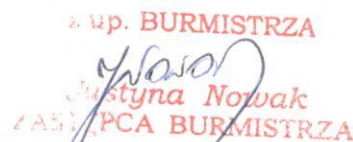 z up. BURMISTRZA
Justyna Nowak
ZASTĘPCA BURMISTRZA